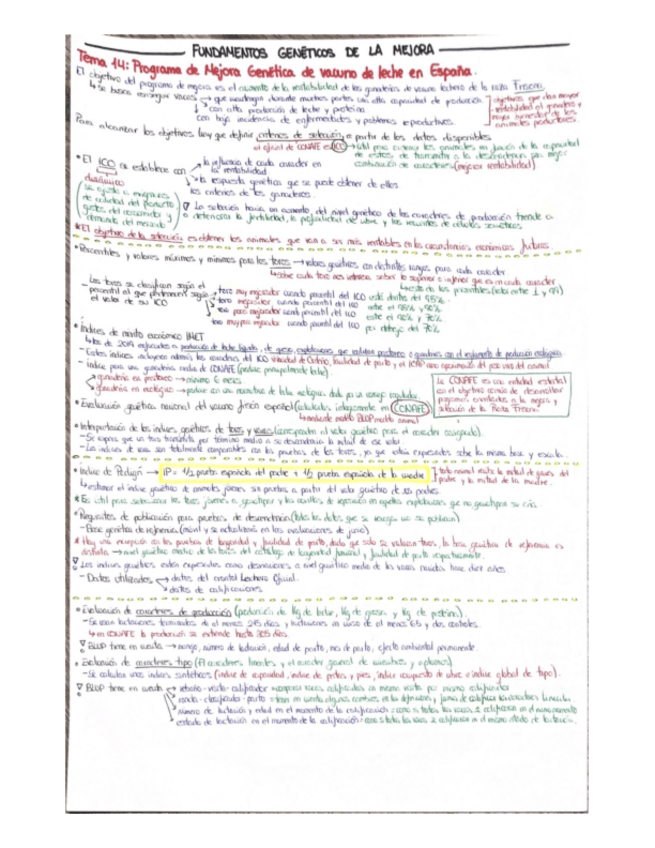 FUNDAMENTOS GENÉTICOS DE LA MEJORA
Tema 14: Programa de Mejora Genética de vacuno de leche en España.
El objetivo del programa de mejora es el aumento de la rentabilidad de las ganaderías de vacuno lechero de la raza Frisona.
↳ se busca conseguir vacas → que produzcan durante muchos partos con alta capacidad de producción
↓ con alta producción de leche y proteína
con baja incidencia de enfermedades y problemas reproductivos.
objetivos que dan mayor rentabilidad al ganadero y mayor bienestar de los animales productores.
Para alcanzar los objetivos hay que definir criterios de selección a partir de los datos disponibles
el oficial de CONAFE es ICO → útil para ordenar los animales en función de la capacidad
de estos de transmitir a la descendencia una mejor
combinación de caracteres (mejor rentabilidad)
• El ICO se establece con → la influencia de cada carácter en
la rentabilidad
↘ la respuesta genética que se puede obtener de ellos.
los criterios de los ganaderos.
dinámico
Se ajusta a exigencias
de calidad del producto
gustos del consumidor y
demanda del mercado
La selección hacia un aumento del nivel genético de los caracteres de producción tiende a
deteriorar la fertilidad, la profundidad de ubre y los recuentos de células somáticas
* El objetivo de la selección es obtener los animales que van a ser más rentables en las circunstancias económicas futuras.
• Percentiles y valores máximos y mínimos para los toros → valores genéticos con distintos rangos para cada carácter
↳ sobre cada toro nos informa sobre lo superior o inferior que es en cada carácter
↳ esto da los percentiles (rolos entre 1 y 99)
- Los toros se clasifican según el
percentil al que pertenecen según
el valor de su ICO
toro muy mejorador cuando percentil del ICO está dentro del 98%
toro mejorador cuando percentil del ICO entre el 98% y 90%
toro poco mejorador cuando percentil del ICO entre el 90% y 70%
toro muy poco mejorador cuando percentil del ICO por debajo del 70%
• Índices de mérito económico IM€T
- Estos índices incluyen además los caracteres del ICO
- índice para una ganadería media de CONAFE (produce principalmente leche)
↳ ganadería en pastoreo → mínimo 6 meses
La CONAFE es una entidad estatal
con el objetivo común de desarrollar
programas orientados a la mejora y
selección de la Raza Frisona.
• Evaluación genética nacional del vacuno frisón español (calculados íntegramente en CONAFE)
↳ mediante modelo BLUP modelo animal
• Interpretación de los índices genéticos de toros y vacas (corresponden al valor genético para el carácter asignado).
- Se espera que un toro transmita por término medio a su descendencia la mitad de ese valor.
- Los índices de vacas son totalmente comparables con las pruebas de los toros, ya que están expresados sobre la misma base y escala.
• Índice de Pedigrí → IP = 1/2 prueba española del padre + 1/2 prueba española de la madre
todo animal recibe la mitad de genes del
padre y la mitad de la madre.
↳ estimar el índice genético de animales jóvenes sin pruebas a partir del valor genético de sus padres.
* Es útil para seleccionar los toros jóvenes a genotipar y las novillas de reposición en aquellas explotaciones que no genotipan su cría.
• Requisitos de publicación para pruebas de descendencia (todos los datos que se recogen no se publican)
- Base genética de referencia (móvil y se actualizará en las evaluaciones de junio)
* Hay una excepción en las pruebas de longevidad y facilidad de parto, dado que solo se valoran toros, la base genética de referencia es
distinta → nivel genético medio de los toros del catálogo de longevidad funcional y facilidad de parto respectivamente.
Los índices genéticos están expresados como desviaciones a nivel genético medio de las vacas nacidas hace diez años.
- Datos utilizados → datos del Control Lechero Oficial.
↘ datos de calificaciones.
• Evaluación de caracteres de producción (producción de Kg de leche, Kg de grasa y Kg de proteína).
- Se usan lactaciones terminadas de al menos 215 días y lactaciones en curso de al menos 65 y dos controles.
↳ en CONAFE la producción se extiende hasta 305 días.
BLUP tiene en cuenta → rebaño, número de lactación, edad de parto, mes de parto, efecto ambiental permanente.
• Evaluación de caracteres tipo (19 caracteres lineales y el carácter general de miembros y aplomos)
- Se calculan unos índices sintéticos (índice de capacidad, índice de patas y pies, índice compuesto de ubre e índice global de tipo).
BLUP tiene en cuenta → rebaño-visita-calificador → compara vacas calificadas en misma visita por mismo calificador
número de lactación y edad en el momento de la calificación → como si todas las vacas se calificaran en el mismo momento
estado de lactación en el momento de la calificación → como si todas las vacas se calificaran en el mismo estado de lactancia.